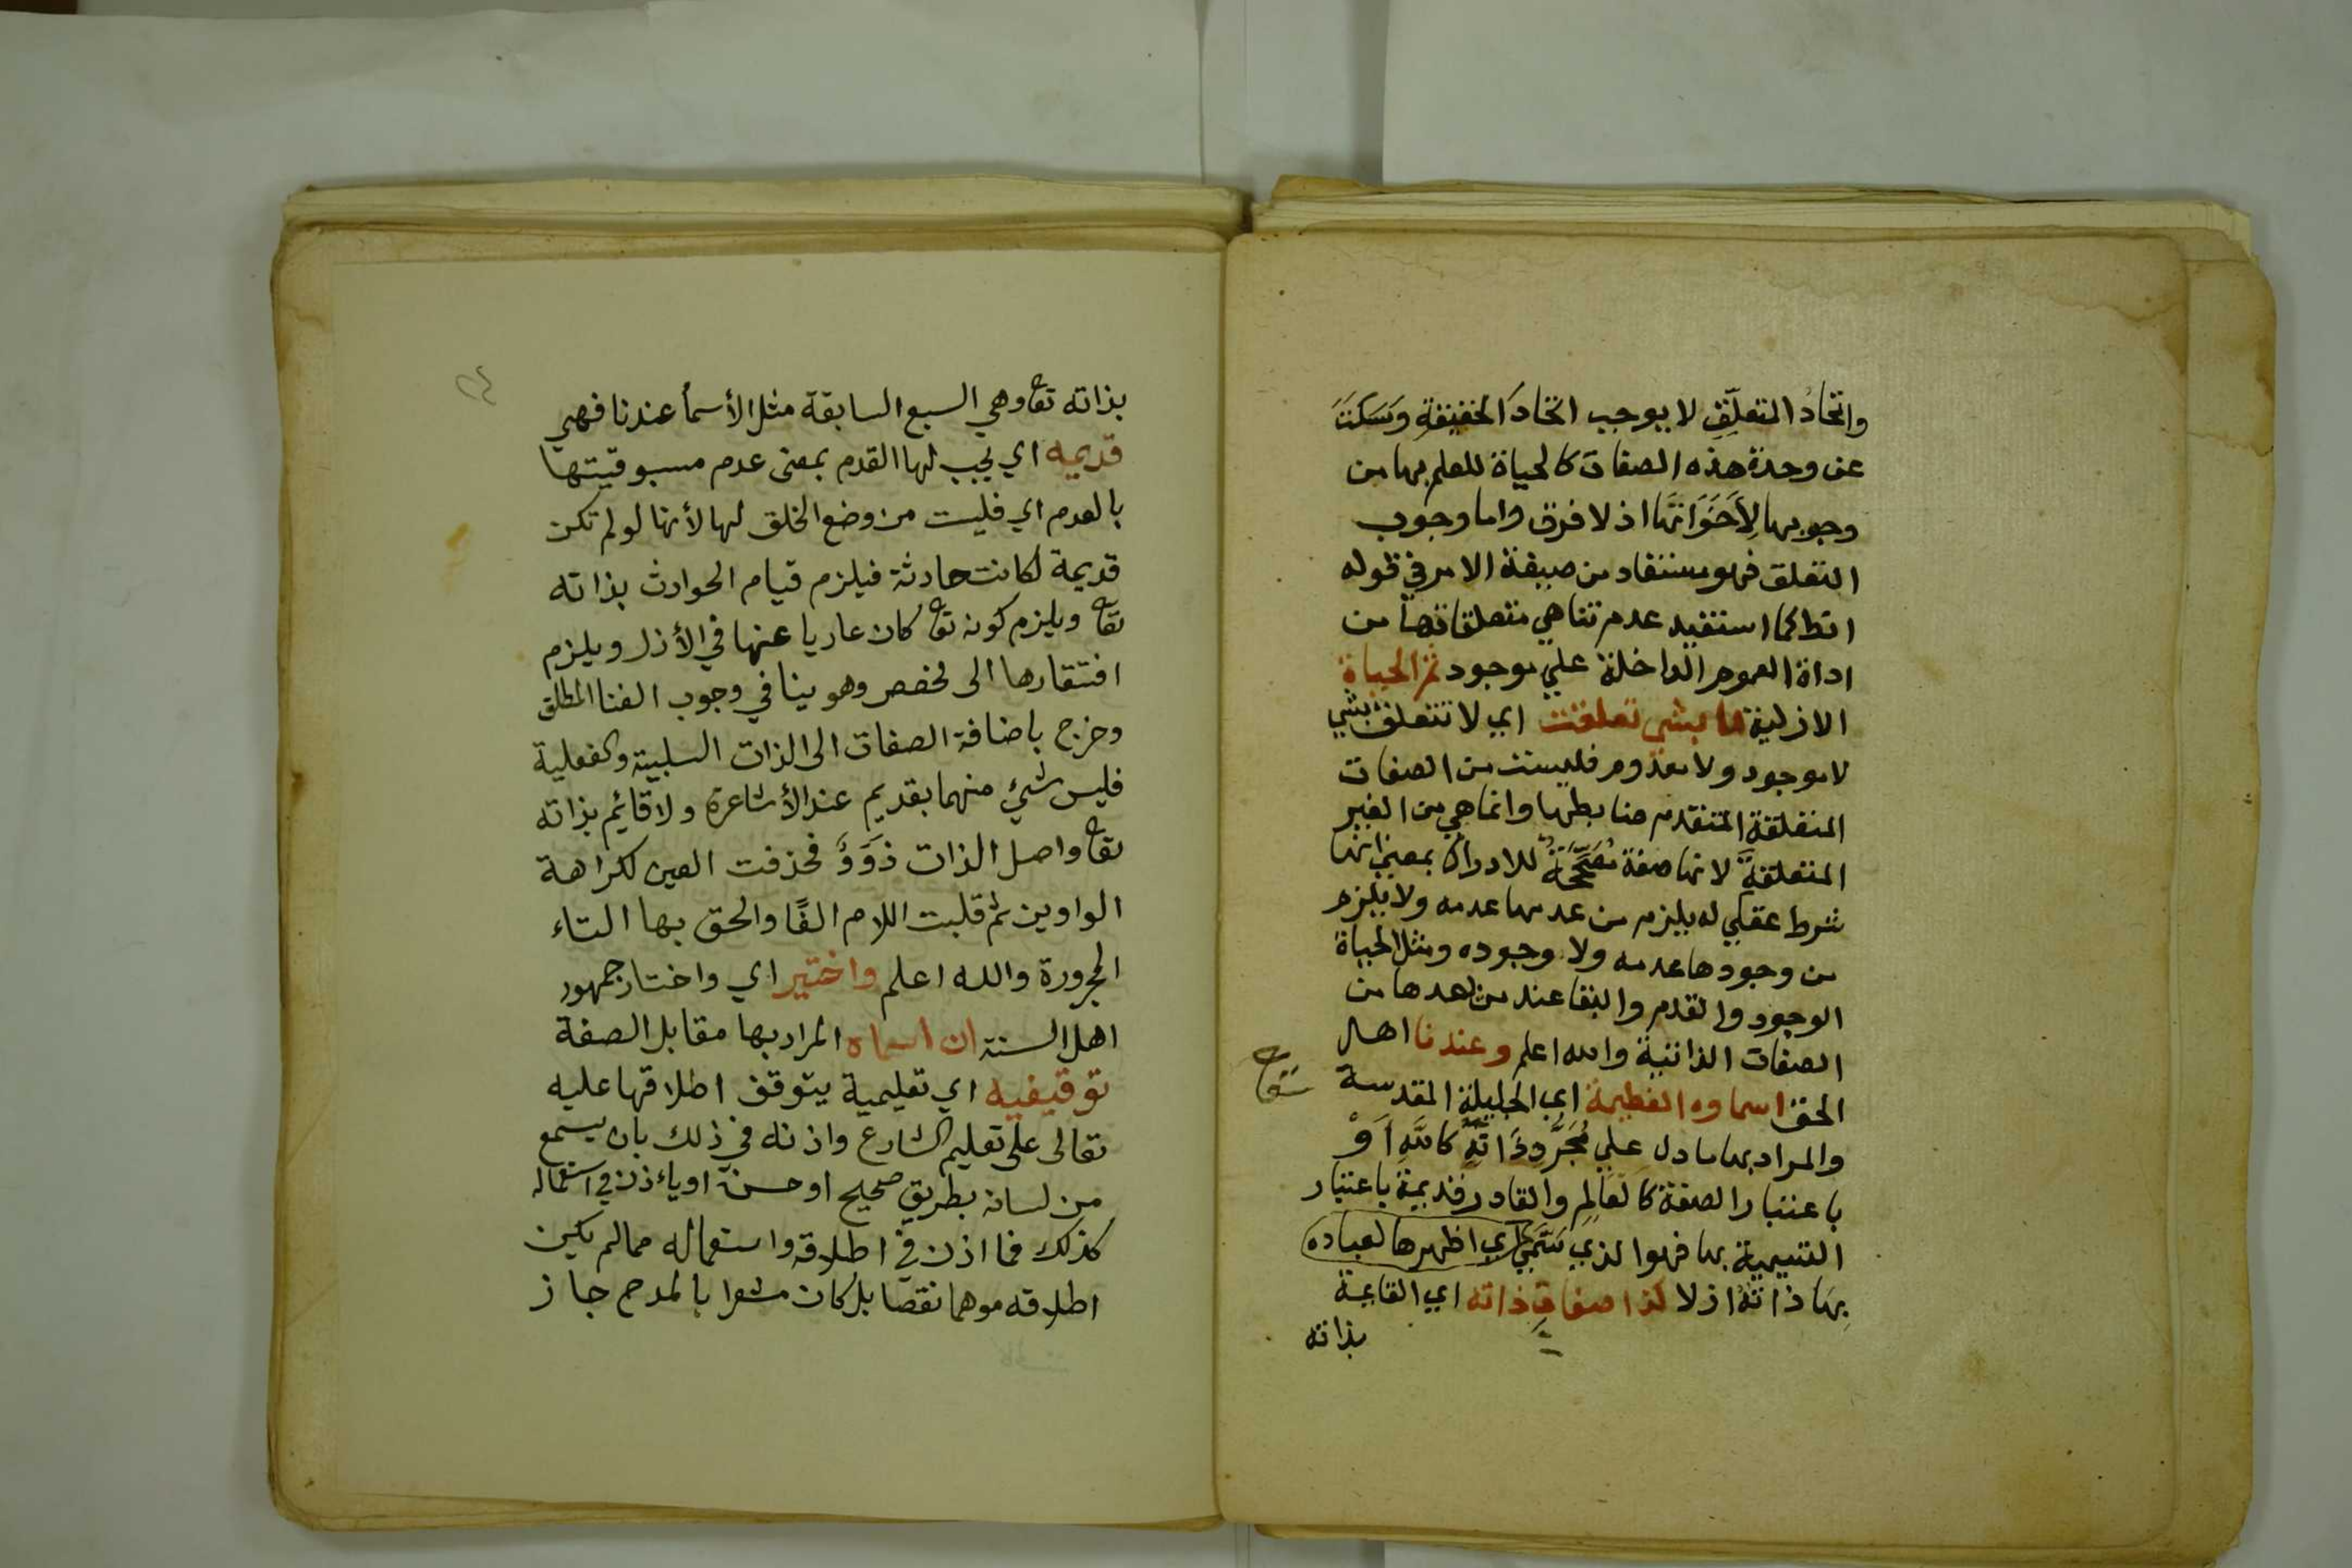 واتحادُ المتعلّقِ لا يوجب اتحادَ الحقيقةِ وَسَكَتَ
عن وحدة هذه الصفات كالحياة للعلم بها من
وجوبها لِأَخَوَاتِهَا اذ لا فرق واما وجوب
التعلق فهو مستفاد من صيغة الامر في قوله
انط كما استفيد عدم تناهي متعلقاتها من
اداة العموم الداخلة علي موجود ثم الحياة
الازلية ما بشي تعلقت اي لا تتعلق بشي
لا موجود ولا معدوم فليست من الصفات
المتعلقة المتقدم ضابطها وانما هي من الغير
المتعلقة لانها صفة مُصَحِّحَةٌ للادراك بمعني انها
شرط عقلي له يلزم من عدمها عدمه ولا يلزم
من وجودها عدمه ولا وجوده ومثل الحياة
الوجود والقدم والبقا عند من يعدها من
الصفات الذاتية والله اعلم وعندنا اهل
الحق اسماوه العظيمة اي الجليلة المقدسة
والمراد بها ما دل علي مُجَرَّدِ ذَاتِهِ كاللَّهِ أَوْ
باعتبار الصفة كالعَالِمِ والقادر قديمة باعتبار
التسمية بها فهو الذي سَمَّي اي اظهرها لعباده
بِهَا ذاتَهُ ازلا كذا صفات ذاته اي القايمة
بذاته
بذاته تع وهي السبع السابقة مثل الأسمأ عندنا فهي
قديمه اي يجب لها القدم بمعنى عدم مسبوقيتها
بالعدم اي فليست من وضع الخلق لها لأنها لو لم تكن
قديمة لكانت حادثة فيلزم قيام الحوادث بذاته
تع ويلزم كونه تع كان عاريا عنها في الأزل ويلزم
افتقارها الى مخصص وهو ينافي وجوب الغنا المطلق
وخرج باضافة الصفات الى الذات السلبية والفعلية
فليس شئ منهما بقديم عند الأشاعرة ولا قائم بذاته
تع واصل الذات ذَوَوَ فحذفت العين لكراهة
الواوين ثم قلبت اللام الفًا والحق بها التاء
المجرورة والله اعلم واختير اي واختار جمهور
اهل السنة ان اسماه المراد بها مقابل الصفة
توقيفيه اي تعليمية يتوقف اطلاقها عليه
تعالى على تعليم الشارع واذنه في ذلك بان يسمع
من لسانه بطريق صحيح او حسن او يأذن في استعماله
كذلك فما اذن في اطلاقه واستعماله مما لم يكن
اطلاقه موهما نقصا بل كان مشعرا بالمدح جاز